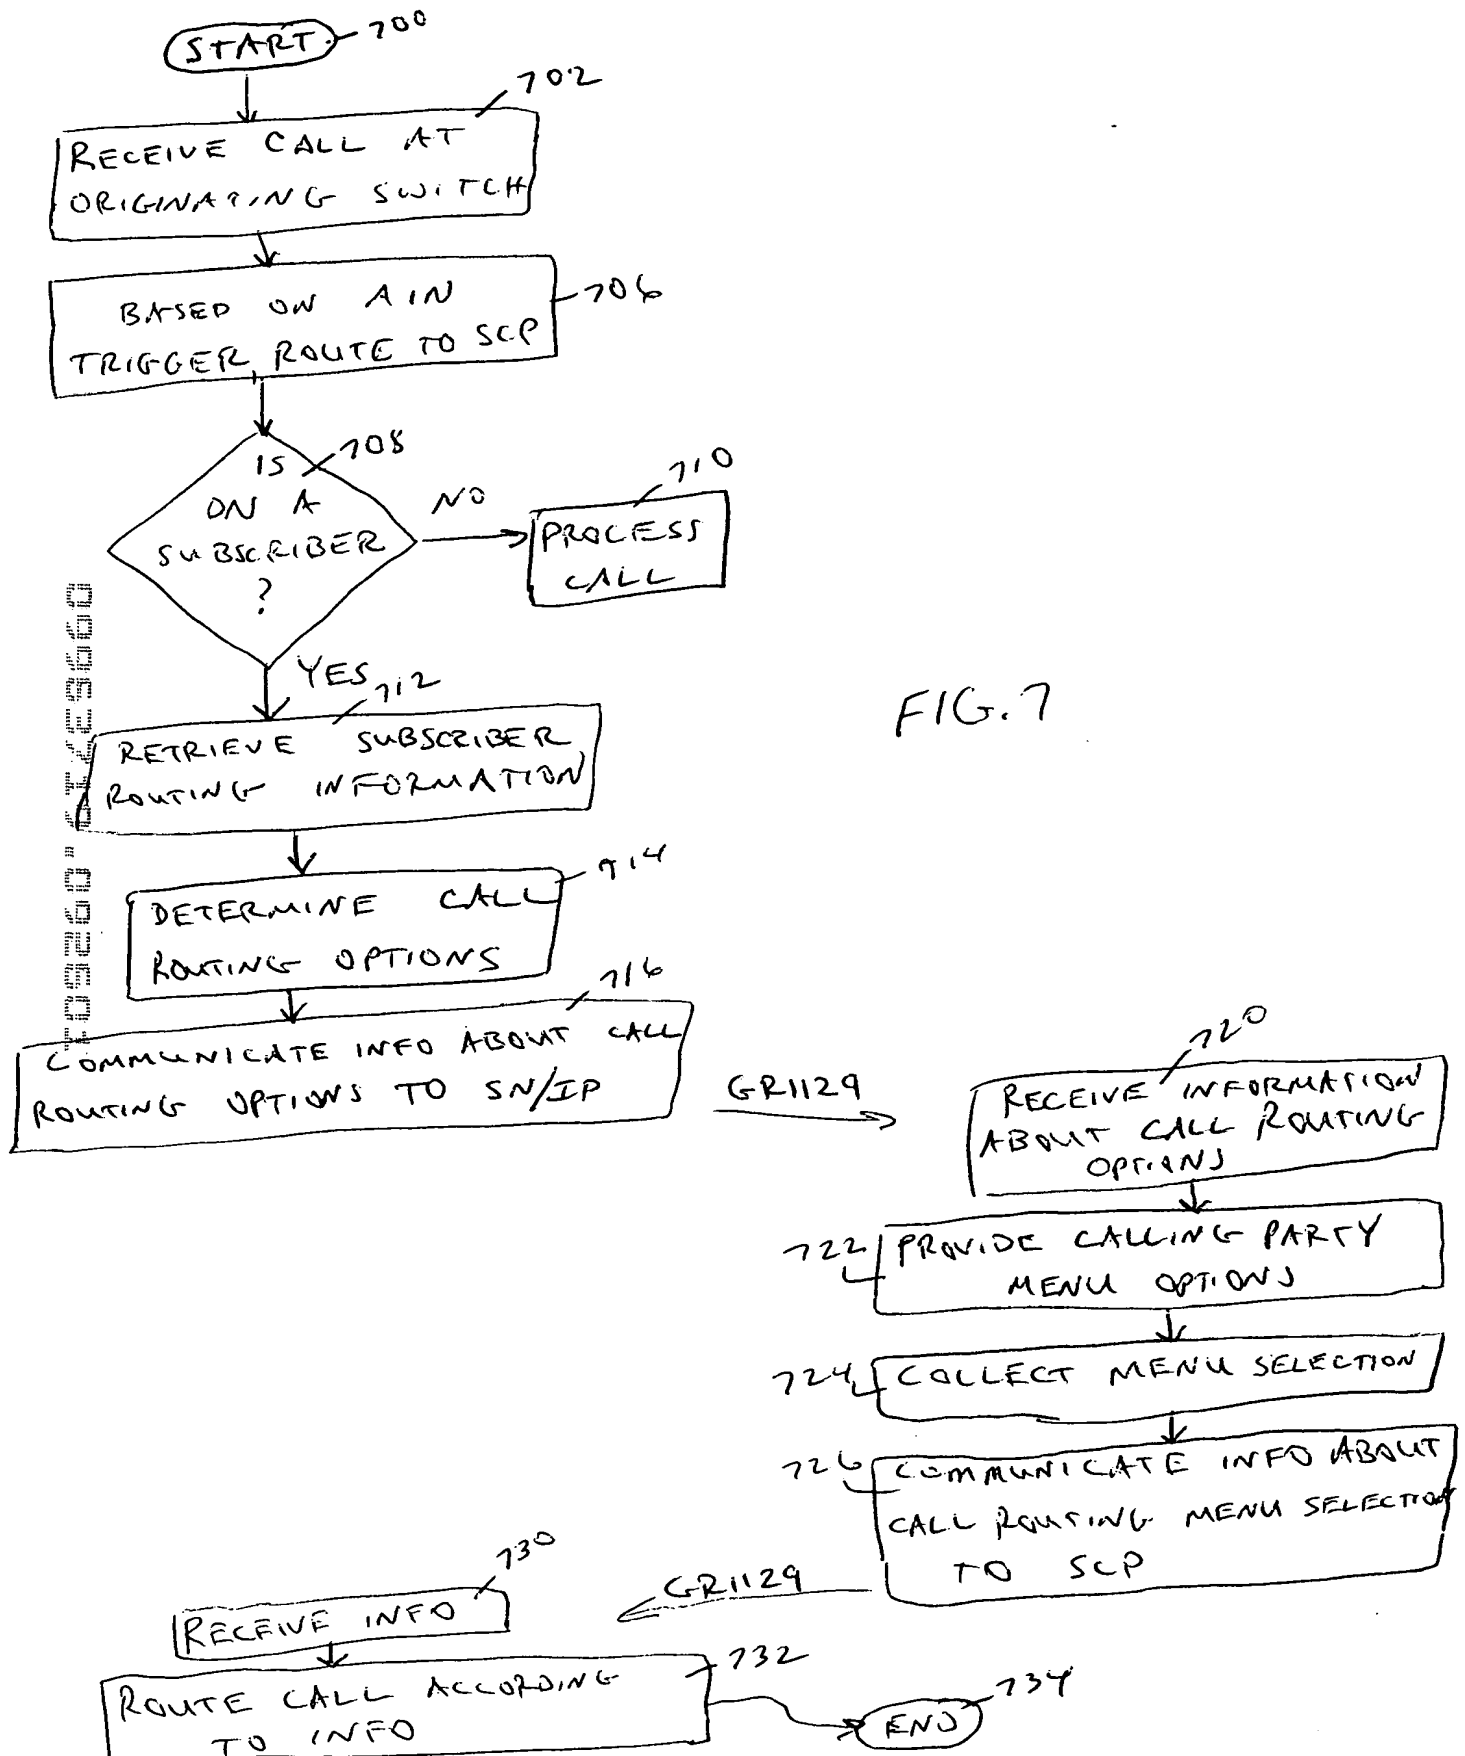 START 700
702
RECEIVE CALL AT
ORIGINATING SWITCH
BASED ON AIN
706
TRIGGER, ROUTE TO SCP
708
IS
ON A
SUBSCRIBER
?
NO
710
PROCESS
CALL
YES
712
RETRIEVE SUBSCRIBER
ROUTING INFORMATION
FIG. 7
714
DETERMINE CALL
ROUTING OPTIONS
716
COMMUNICATE INFO ABOUT CALL
ROUTING OPTIONS TO SN/IP
GR1129
720
RECEIVE INFORMATION
ABOUT CALL ROUTING
OPTIONS
722
PROVIDE CALLING PARTY
MENU OPTIONS
724
COLLECT MENU SELECTION
726
COMMUNICATE INFO ABOUT
CALL ROUTING MENU SELECTION
TO SCP
GR1129
730
RECEIVE INFO
732
ROUTE CALL ACCORDING
TO INFO
END
734